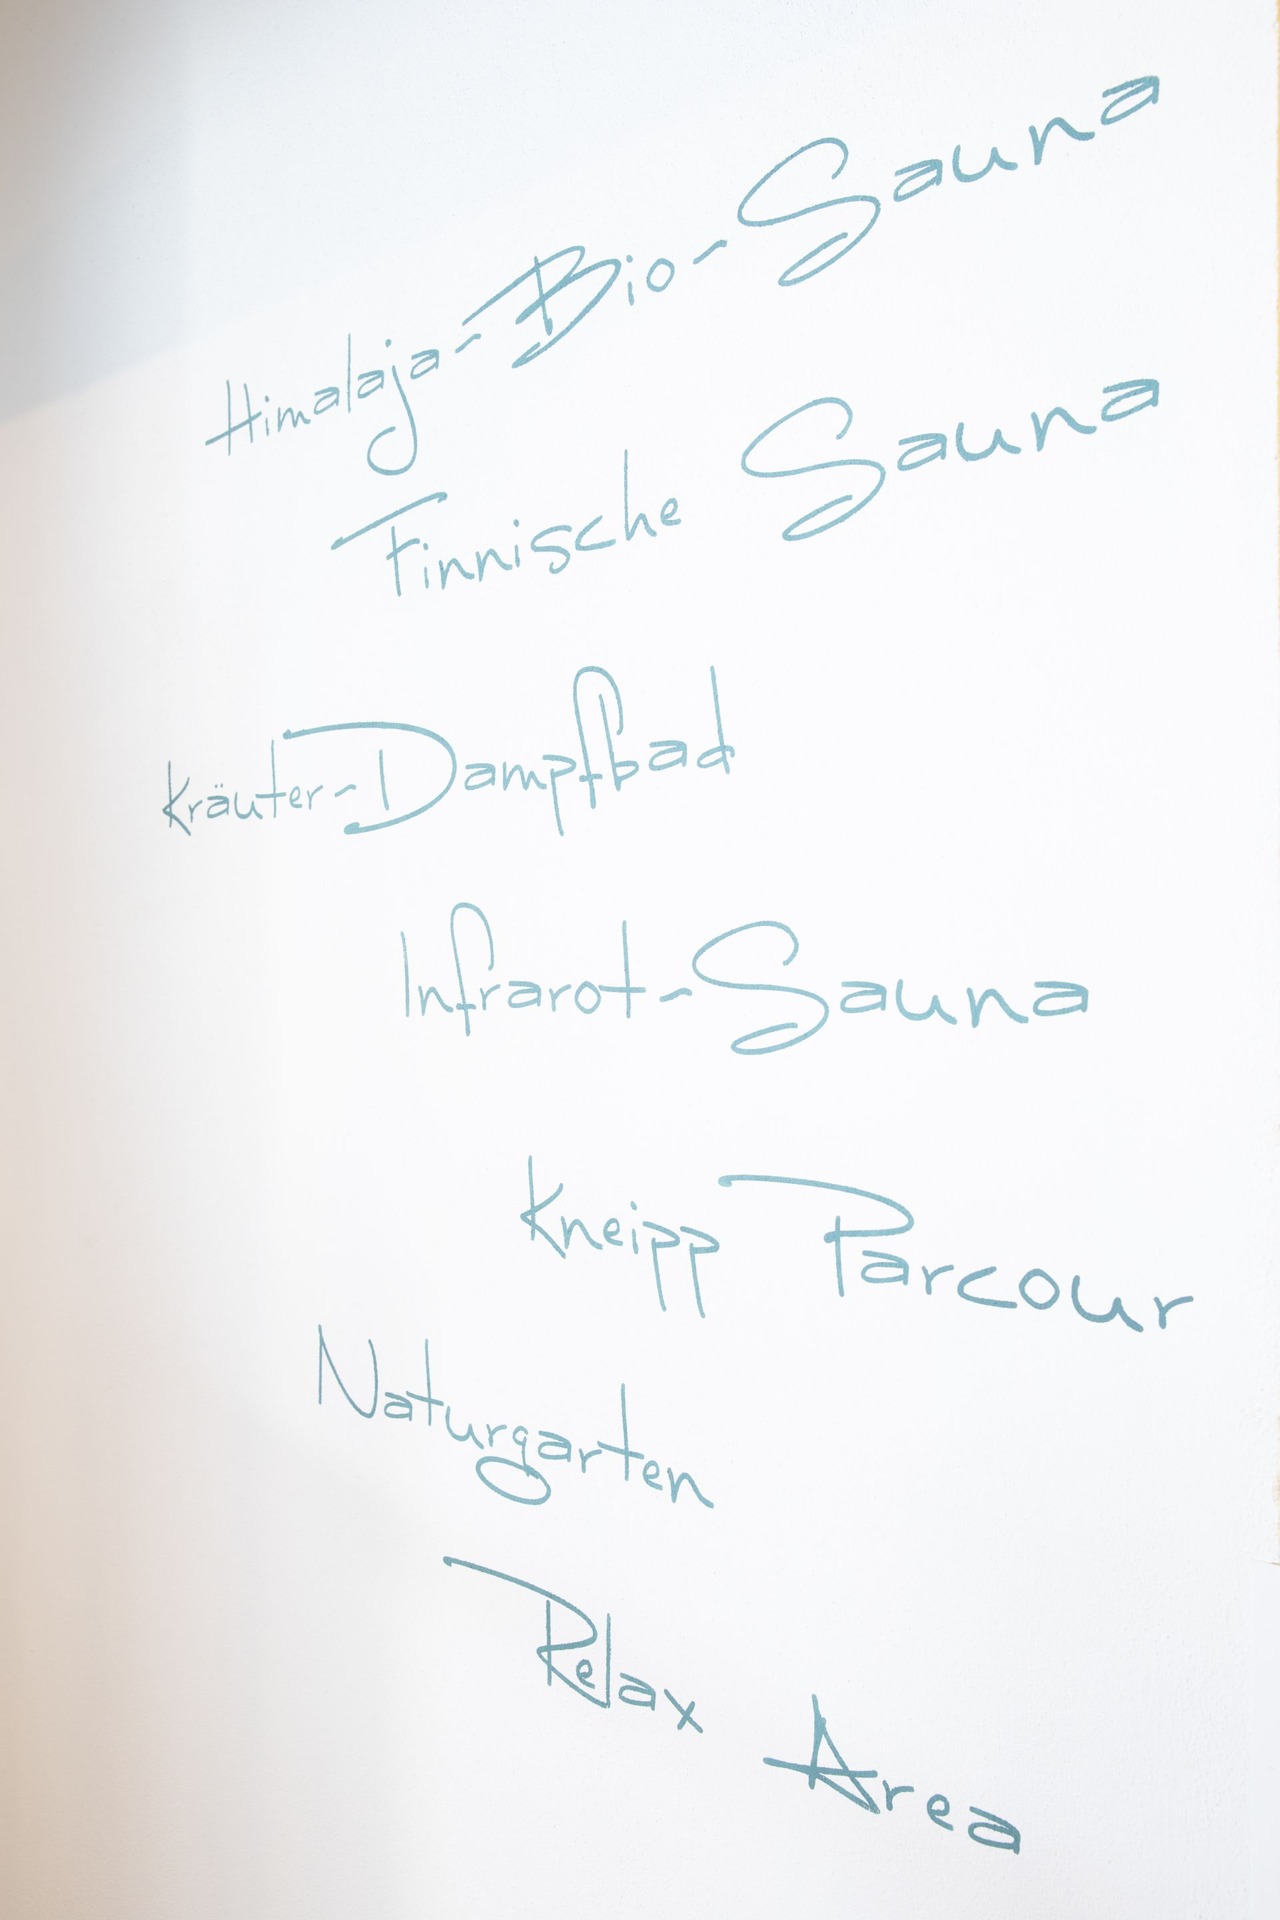 Himalaja-Bio-Sauna
Finnische Sauna
Kräuter-Dampfbad
Infrarot-Sauna
Kneipp Parcour
Naturgarten
Relax Area